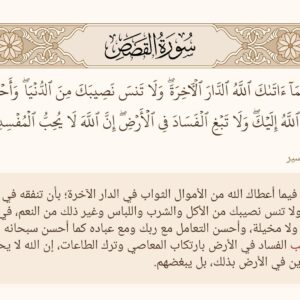 سُورَةُ القَصَصِ
مَآ ءَاتَىٰكَ ٱللَّهُ ٱلدَّارَ ٱلْأٓخِرَةَۖ وَلَا تَنسَ نَصِيبَكَ مِنَ ٱلدُّنْيَاۖ وَأَحْ
ٱللَّهُ إِلَيْكَۖ وَلَا تَبْغِ ٱلْفَسَادَ فِى ٱلْأَرْضِۖ إِنَّ ٱللَّهَ لَا يُحِبُّ ٱلْمُفْسِدِ
سير
فيما أعطاك الله من الأموال الثواب في الدار الآخرة؛ بأن تنفقه في
ولا تنس نصيبك من الأكل والشرب واللباس وغير ذلك من النعم، في
ولا مخيلة، وأحسن التعامل مع ربك ومع عباده كما أحسن سبحانه
ب الفساد في الأرض بارتكاب المعاصي وترك الطاعات، إن الله لا يح
ين في الأرض بذلك، بل يبغضهم.